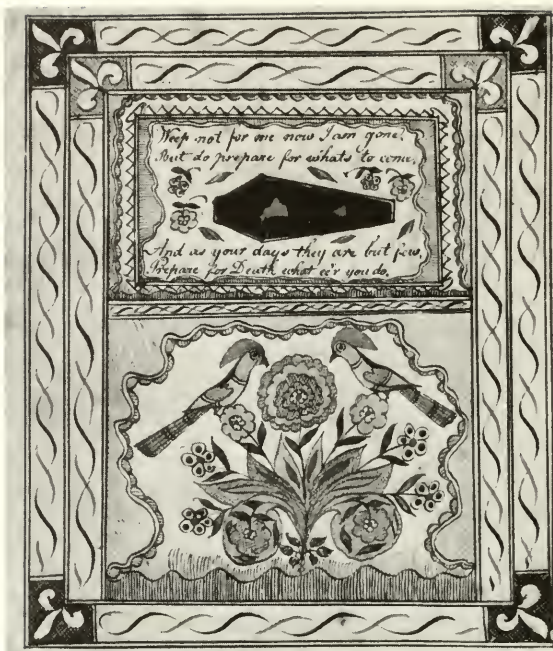 Weep not for me now I am gone,
But do prepare for whats to come,
And as your days they are but few,
Prepare for Death what ee'r you do,